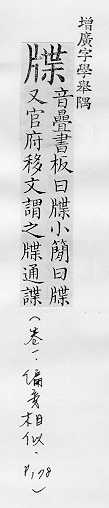 增廣字學舉隅
牒
音疊書板曰牒小簡曰牒
又官府移文謂之牒通諜
(卷一.偏旁相似.
P178)